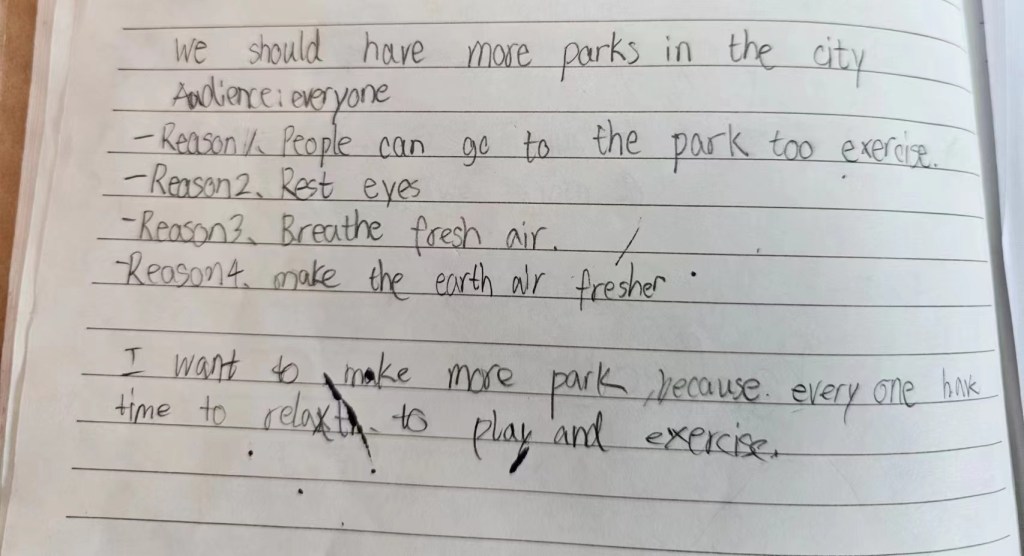 We should have more parks in the city
Audience: everyone
- Reason 1. People can go to the park too exercise.
- Reason2. Rest eyes
- Reason3. Breathe fresh air.
- Reason4. make the earth air fresher.
I want to make more park, because. every one have
time to relax to play and exercise.